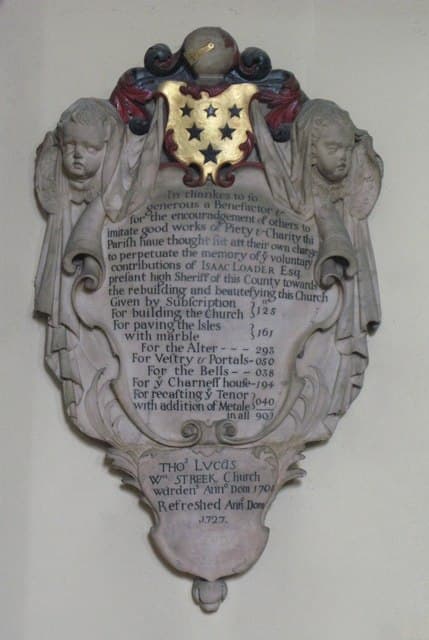 In thankes to so
generous a Benefactor &
for the encouradgement of others to
imitate good works of Piety & Charity this
Parish haue thought fitt att their own charge
to perpetuate the memory of yͤ voluntary
contributions of ISAAC LOADER Esq
present high Sheriff of this County towards
the rebuilding and beautefying this Church
Given by Subscription
For building the Church } 125
For paving the Isles
with marble } 161
For the Alter - - - 293
For Vestry & Portals - 050
For the Bells - - 038
For yͤ Charnell house - 194
For recasting yͤ Tenor
with addition of Metale } 040
in all 90
THOˢ LVCAS
Wᵐ STREEK Church
wardens Annº Dom 170
Refreshed Annº Dom
1727.